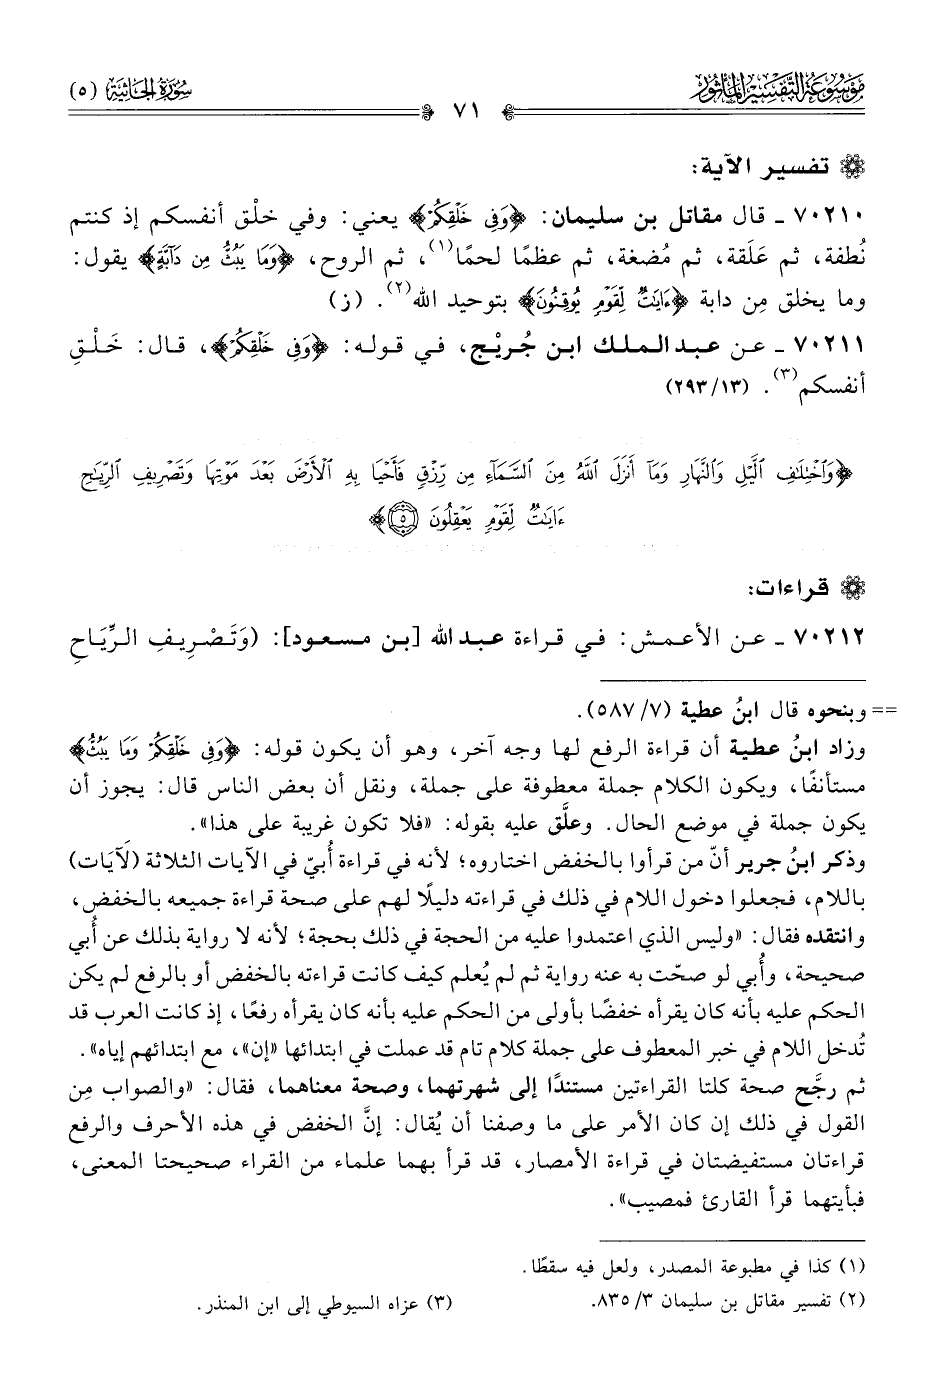 مَوْسُوعَة التَّفْسِير المَأْثُور
سُورَةُ الجَاثِيَة (٥)
٧١
تفسير الآية:
٧٠٢١٠ ـ قال مقاتل بن سليمان: ﴿وَفِي خَلْقِكُمْ﴾ يعني: وفي خلْق أنفسكم إذ كنتم
نُطفة، ثم عَلَقة، ثم مُضغة، ثم عظمًا لحمًا(١)، ثم الروح، ﴿وَمَا يَبُثُّ مِن دَآبَّةٍ﴾ يقول:
وما يخلق مِن دابة ﴿ءَايَٰتٌ لِّقَوْمٍ يُوقِنُونَ﴾ بتوحيد الله(٢). (ز)
٧٠٢١١ ـ عن عبد الملك ابن جُريْج، في قوله: ﴿وَفِي خَلْقِكُمْ﴾، قال: خَلْقِ
أنفسكم(٣). (١٣/ ٢٩٣)
﴿وَٱخْتِلَٰفِ ٱلَّيْلِ وَٱلنَّهَارِ وَمَآ أَنزَلَ ٱللَّهُ مِنَ ٱلسَّمَآءِ مِن رِّزْقٍ فَأَحْيَا بِهِ ٱلْأَرْضَ بَعْدَ مَوْتِهَا وَتَصْرِيفِ ٱلرِّيَٰحِ
ءَايَٰتٌ لِّقَوْمٍ يَعْقِلُونَ ٥﴾
قراءات:
٧٠٢١٢ ـ عن الأعمش: في قراءة عبد الله [بن مسعود]: (وَتَصْرِيفِ الرِّيَاحِ
== وبنحوه قال ابنُ عطية (٧/ ٥٨٧).
وزاد ابنُ عطية أن قراءة الرفع لها وجه آخر، وهو أن يكون قوله: ﴿وَفِي خَلْقِكُمْ وَمَا يَبُثُّ﴾
مستأنفًا، ويكون الكلام جملة معطوفة على جملة، ونقل أن بعض الناس قال: يجوز أن
يكون جملة في موضع الحال. وعلَّق عليه بقوله: «فلا تكون غريبة على هذا».
وذكر ابنُ جرير أنّ من قرأوا بالخفض اختاروه؛ لأنه في قراءة أُبيّ في الآيات الثلاثة (لَآيَات)
باللام، فجعلوا دخول اللام في ذلك في قراءته دليلًا لهم على صحة قراءة جميعه بالخفض،
وانتقده فقال: «وليس الذي اعتمدوا عليه من الحجة في ذلك بحجة؛ لأنه لا رواية بذلك عن أُبي
صحيحة، وأُبي لو صحّت به عنه رواية ثم لم يُعلم كيف كانت قراءته بالخفض أو بالرفع لم يكن
الحكم عليه بأنه كان يقرأه خفضًا بأولى من الحكم عليه بأنه كان يقرأه رفعًا، إذ كانت العرب قد
تُدخل اللام في خبر المعطوف على جملة كلام تام قد عملت في ابتدائها «إن»، مع ابتدائهم إياه».
ثم رجَّح صحة كلتا القراءتين مستندًا إلى شهرتهما، وصحة معناهما، فقال: «والصواب مِن
القول في ذلك إن كان الأمر على ما وصفنا أن يُقال: إنَّ الخفض في هذه الأحرف والرفع
قراءتان مستفيضتان في قراءة الأمصار، قد قرأ بهما علماء من القراء صحيحتا المعنى،
فبأيتهما قرأ القارئ فمصيب».
(١) كذا في مطبوعة المصدر، ولعل فيه سقطًا.
(٢) تفسير مقاتل بن سليمان ٣/ ٨٣٥.
(٣) عزاه السيوطي إلى ابن المنذر.